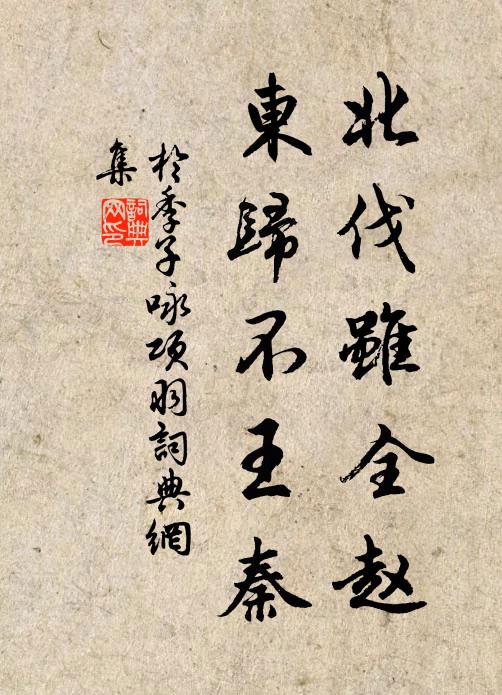 北伐雖全趙
東歸不王秦
於季子咏項羽詞典網
集
詞典
网印